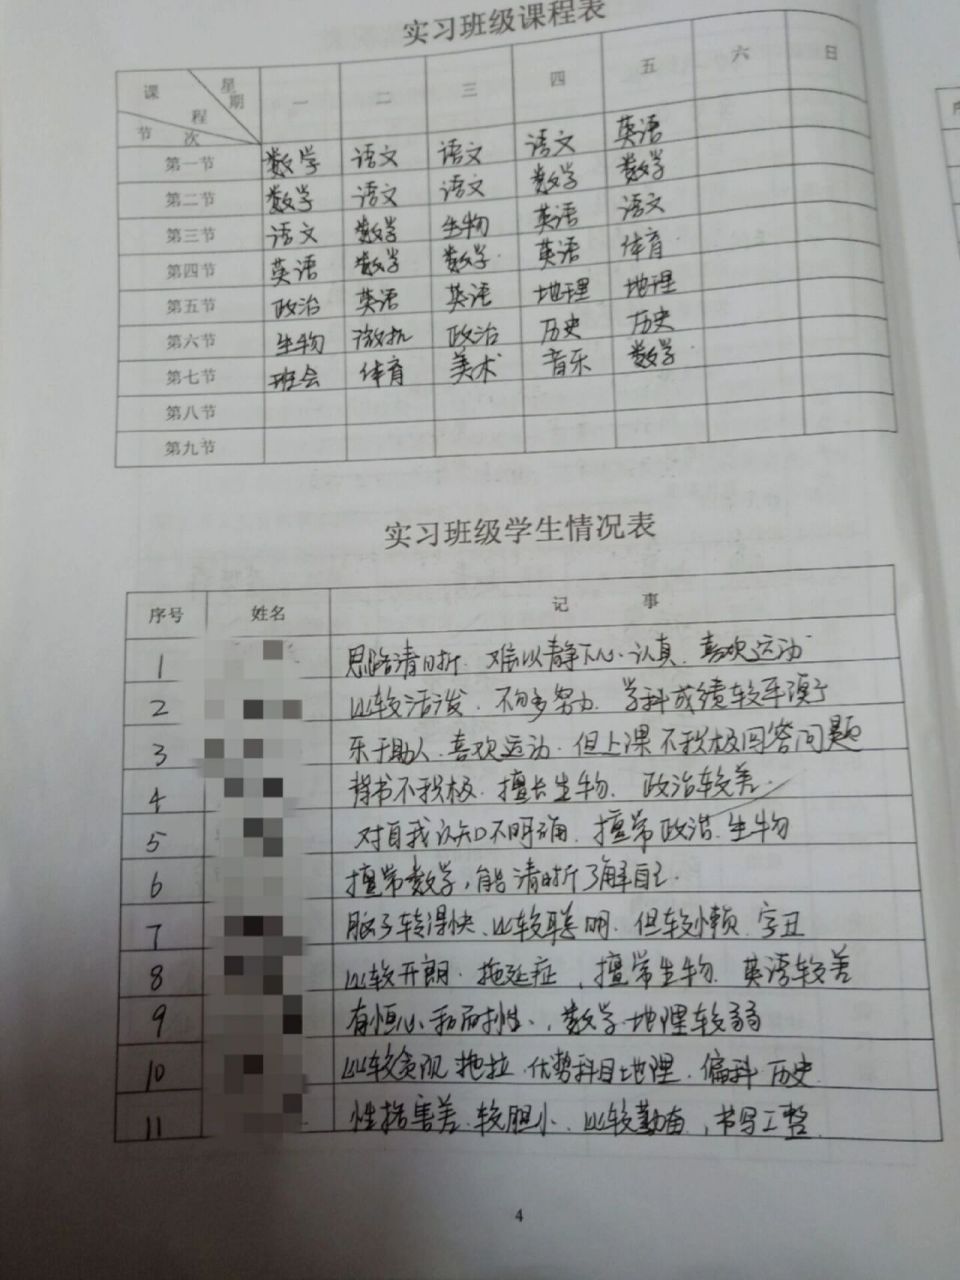 实习班级课程表
课程 星期 节次 一 二 三 四 五 六 日
第一节 数学 语文 语文 语文 英语
第二节 数学 语文 语文 数学 数学
第三节 语文 数学 生物 英语 语文
第四节 英语 数学 数学 英语 体育
第五节 政治 英语 英语 地理 地理
第六节 生物 微机 政治 历史 历史
第七节 班会 体育 美术 音乐 数学
第八节
第九节
实习班级学生情况表
序号 姓名 记事
1 思路清晰.难以静下心.认真.喜欢运动
2 比较活泼.不够努力.学科成绩较平
3 乐于助人.喜欢运动.但上课不积极回答问题
4 背书不积极.擅长生物.政治较差.
5 对自我认知不明确.擅常政治.生物
6 擅常数学,能清晰了解自己.
7 脑子转得快.比较聪明.但较懒.字丑
8 比较开朗.拖延症,擅常生物.英语较差
9 有恒心和耐性.,数学.地理较弱
10 比较贪玩 拖拉.优势科目地理.偏科 历史.
11 性格害羞.较胆小.比较勤奋,书写工整.
4